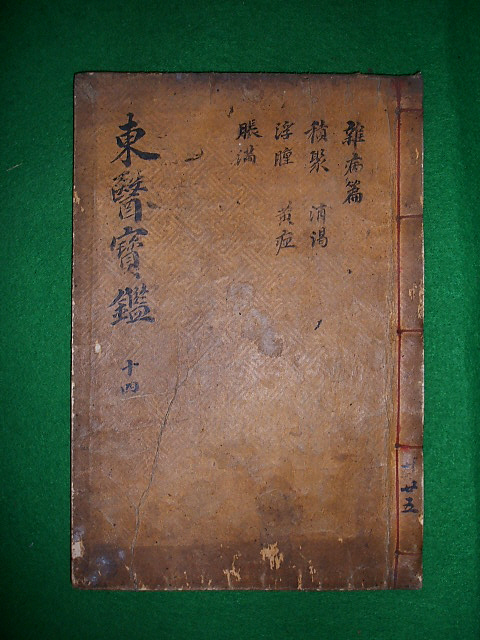 東醫寶鑑
十四
雜病篇
積聚 消渴
浮腫 黃疸
脹滿
廿五